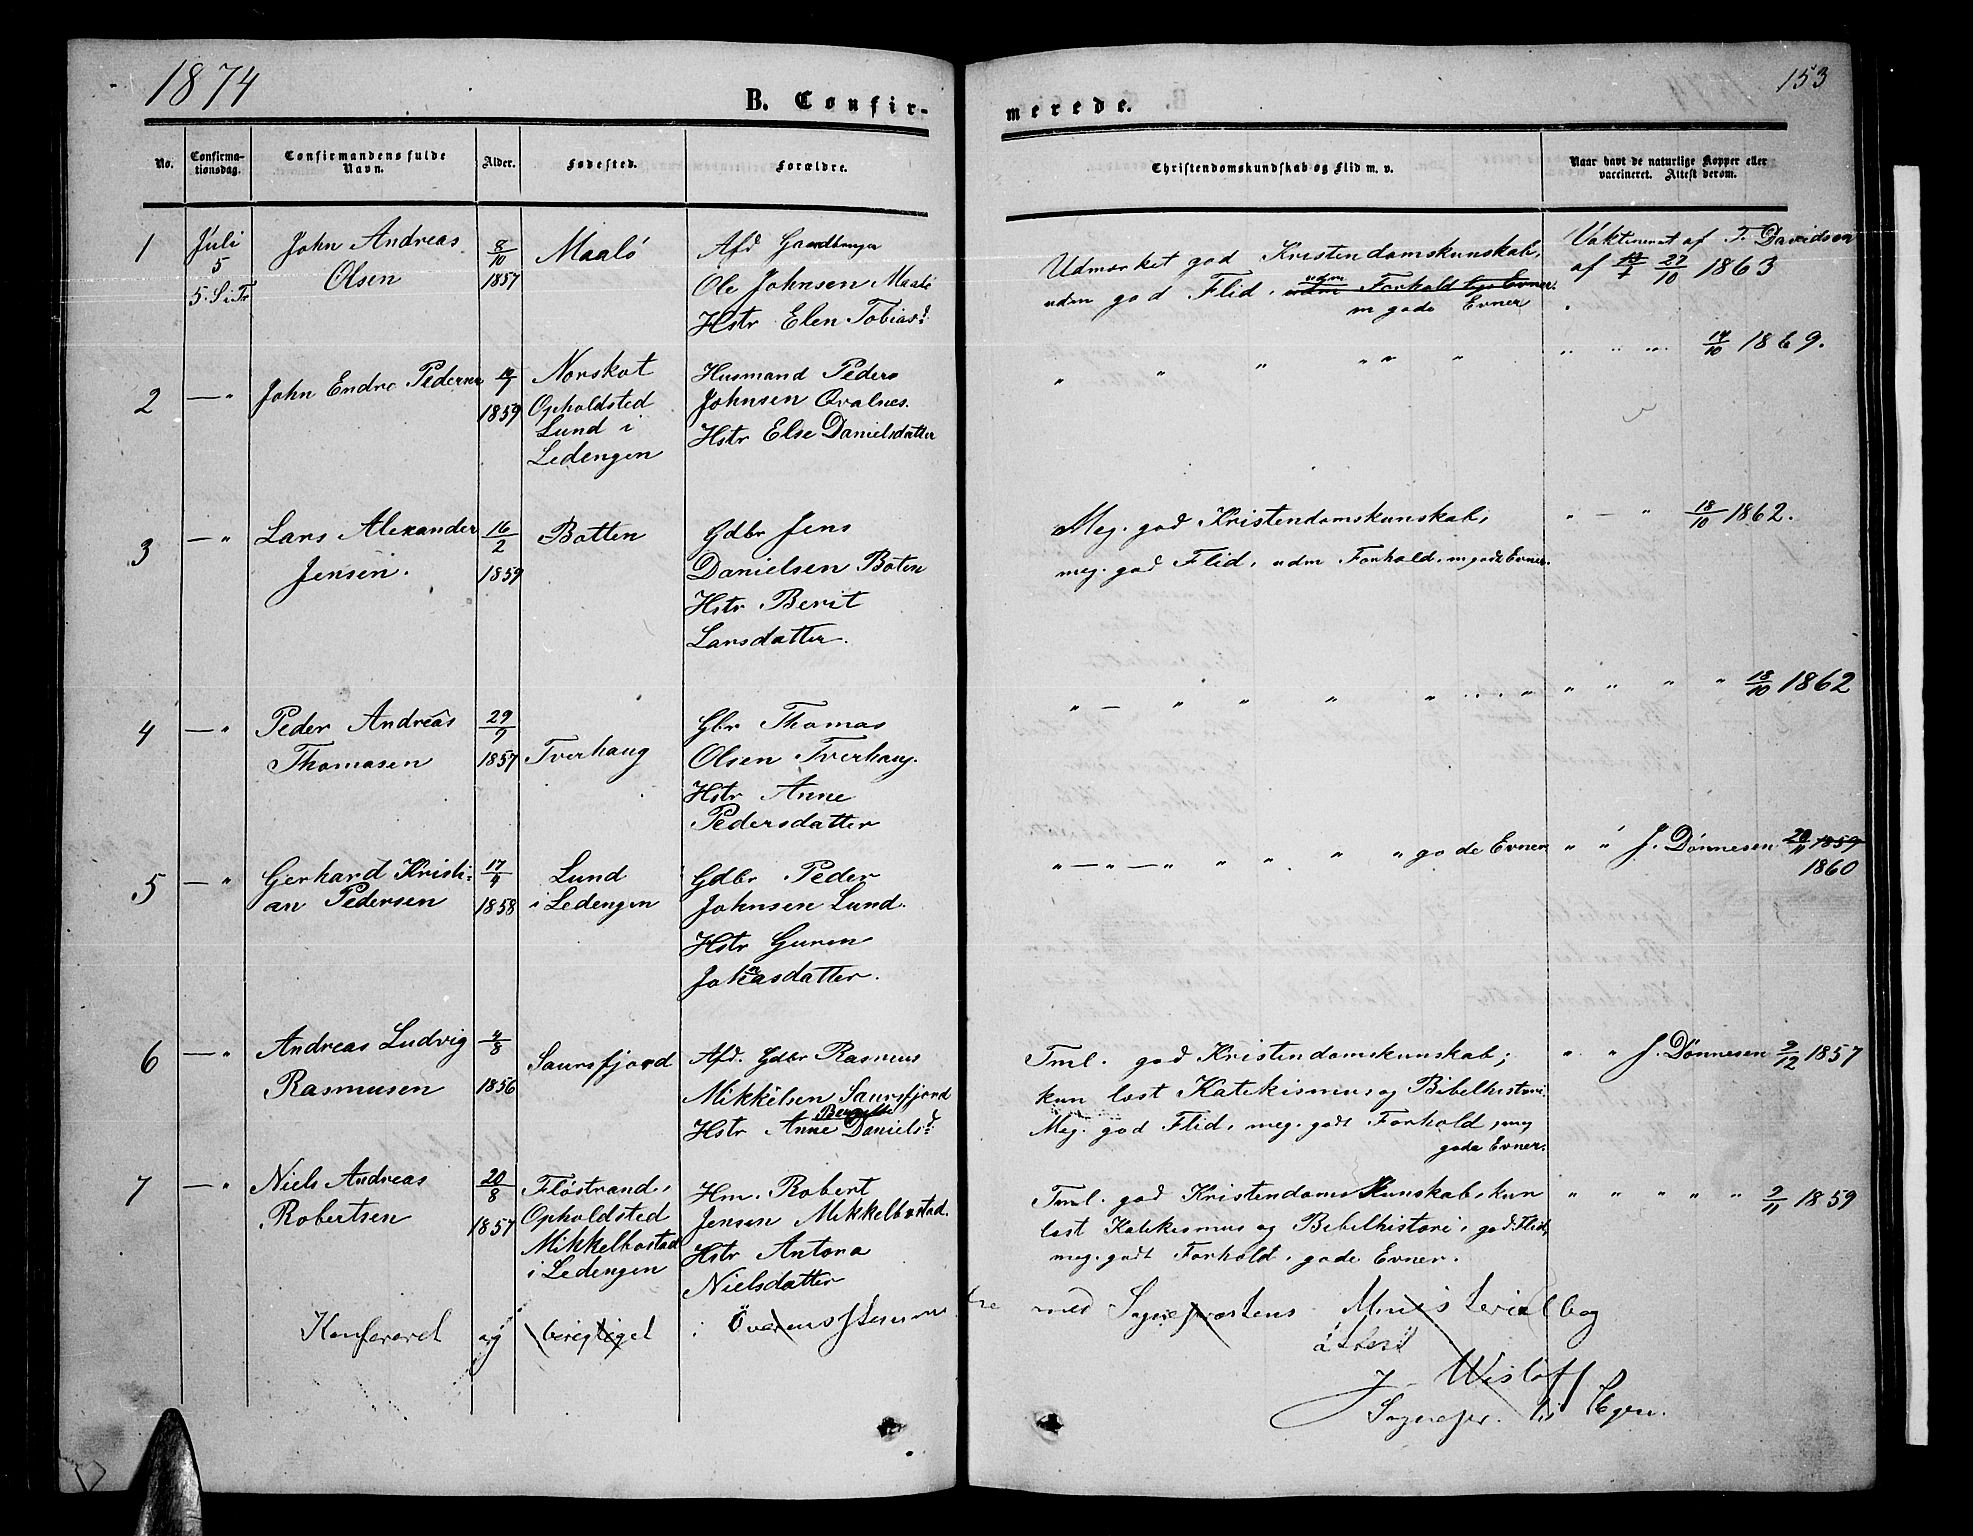 1874
B. Confir-
No.
Confirma-
tionsdag.
Confirmandens fulde
Navn.
Alder.
Fødested.
Forældre.
1
Juli
5
5. S. e Tr
John Andreas
Olsen
8/10
1857
Maalö
Afd Gaardbruger
Ole Johnsen Maalö
Hstr Elen Tobiasd.
2
— "
John Endre Pedersen
1859
Norskot
Opholdsted
Lund i
Ledengen
Husmand Peder
Johnsen Qvalnes.
Hstr Else Danielsdatter
3
— "
Lars Alexander
Jensen.
16/2
1859
Botten
Gdbr Jens
Danielsen Boten
Hstr Berit
Larsdatter.
4
— "
Peder Andreas
Thomasen
29/9
1857
Tverhaug
Gbr Thomas
Olsen Tverhaug.
Hstr Anne
Pedersdatter
5
— "
Gerhard Kristi-
an Pedersen
17/4
1858
Lund
i Ledengen
Gdbr Peder
Johnsen Lund.
Hstr Guren
Jonasdatter.
6
— "
Andreas Ludvig
Rasmusen
4/8
1856
Saursfjord
Afd. Gdbr Rasmus
Mikkelsen Saursfjord
Beregitte
Hstr Anne Danielsd.
7
— "
Niels Andreas
Robertsen
20/8
1857
Flöstrand,
Opholdsted
Mikkelbostad
i Ledengen
Hm. Robert
Jensen Mikkelbostad.
Hstr Antona
Nielsdatter
Konfereret og berigtiget i Överensstemmel
153
merede.
Christendomskundskab og Flid m. v.
Naar havt de naturlige Kopper eller
vaccineret. Attest derom.
Udmærket god Kristendomskunskab,
udm god Flid, udm Forhold
m gode Evner
Vaktineret af T. Davidsen
af 27/10 1863
" " " " " "
" " " 14/10 1869.
Meg. god Kristendomskunskab,
meg. god Flid, udm Forhold, m gode Evner.
" — " 18/10 1862.
" — " " " " " "
" " " " 18/10 1862
" — " — " " " " " gode Evner
" " J. Dönnesen 20/11 1859
1860
Tml. god Kristendomskunskab;
kun læst Katekismus og Bibelhistori.
Meg. god Flid, meg. godt Forhold, meg
gode Evner.
" " J. Dönnesen 9/12 1857
Tml. god Kristendoms Kunskab, kun
læst Katekismus og Bibelhistori, god Flid,
meg. godt Forhold, gode Evner.
" " " " " 9/11 1859
med Sognepræstens Ministerialbog
attest
J. Wislöff
Sognepr.